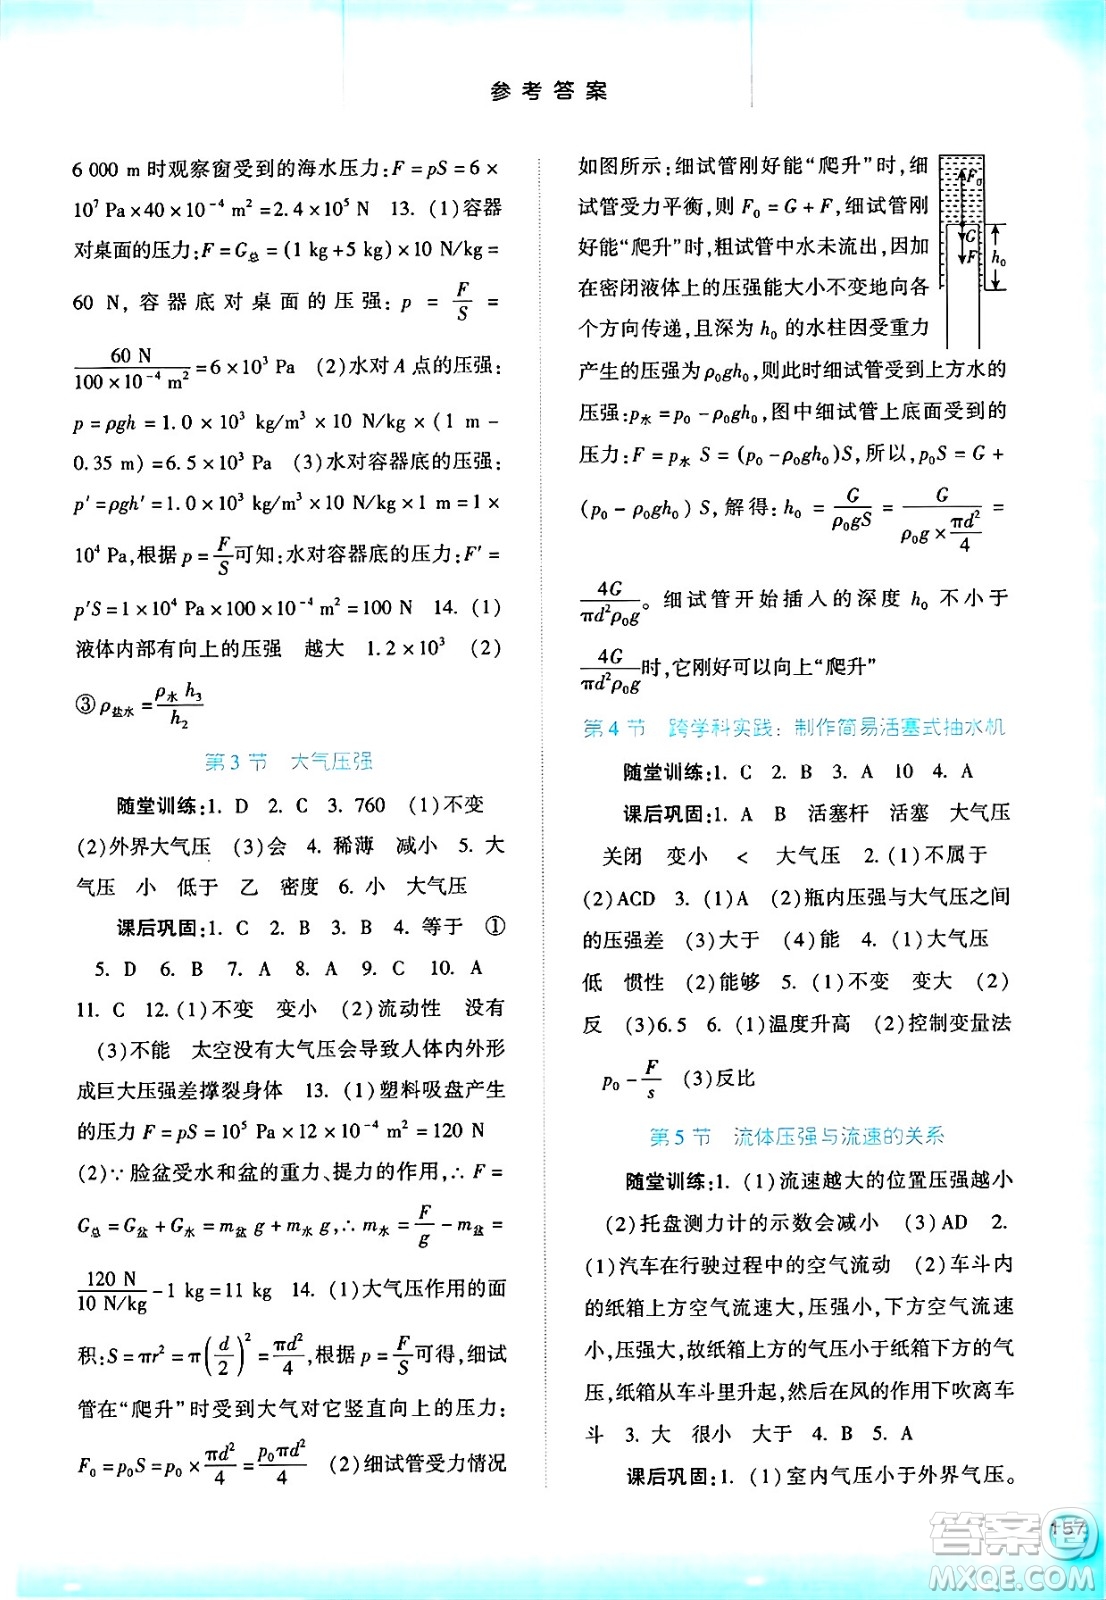 参考答案
6 000 m 时观察窗受到的海水压力:F = pS = 6 ×
10⁷ Pa × 40 × 10⁻⁴ m² = 2.4 × 10⁵ N　13. (1)容器
对桌面的压力:F = G总 = (1 kg + 5 kg) × 10 N/kg =
60 N, 容器底对桌面的压强: p = F/S =
60 N/(100 × 10⁻⁴ m²) = 6 × 10³ Pa　(2)水对 A 点的压强:
p = ρgh = 1.0 × 10³ kg/m³ × 10 N/kg × (1 m -
0.35 m) = 6.5 × 10³ Pa　(3)水对容器底的压强:
p′ = ρgh′ = 1.0 × 10³ kg/m³ × 10 N/kg × 1 m = 1 ×
10⁴ Pa,根据 p = F/S 可知:水对容器底的压力:F′ =
p′S = 1 × 10⁴ Pa × 100 × 10⁻⁴ m² = 100 N　14. (1)
液体内部有向上的压强　越大　1.2 × 10³　(2)
③ρ盐水 = ρ水h₃/h₂
第 3 节　大气压强
随堂训练:1. D　2. C　3. 760　(1)不变
(2)外界大气压　(3)会　4. 稀薄　减小　5. 大
气压　小　低于　乙　密度　6. 小　大气压
课后巩固:1. C　2. B　3. B　4. 等于　①
5. D　6. B　7. A　8. A　9. C　10. A
11. C　12. (1)不变　变小　(2)流动性　没有
(3)不能　太空没有大气压会导致人体内外形
成巨大压强差撑裂身体　13. (1)塑料吸盘产生
的压力 F = pS = 10⁵ Pa × 12 × 10⁻⁴ m² = 120 N
(2)∵脸盆受水和盆的重力、提力的作用,∴F =
G总 = G盆 + G水 = m盆 g + m水 g,∴m水 = F/g - m盆 =
120 N/(10 N/kg) - 1 kg = 11 kg　14. (1)大气压作用的面
积:S = πr² = π(d/2)² = πd²/4,根据 p = F/S 可得,细试
管在“爬升”时受到大气对它竖直向上的压力:
F₀ = p₀S = p₀ × πd²/4 = p₀πd²/4　(2)细试管受力情况
如图所示:细试管刚好能“爬升”时,细
试管受力平衡,则 F₀ = G + F,细试管刚
好能“爬升”时,粗试管中水未流出,因加
在密闭液体上的压强能大小不变地向各
个方向传递,且深为 h₀ 的水柱因受重力
F₀
G
F
h₀
产生的压强为 ρ₀gh₀,则此时细试管受到上方水的
压强:p水 = p₀ - ρ₀gh₀,图中细试管上底面受到的
压力:F = p水 S = (p₀ - ρ₀gh₀)S,所以,p₀S = G +
(p₀ - ρ₀gh₀) S,解得: h₀ = G/(ρ₀gS) = G/(ρ₀g × πd²/4) =
4G/(πd²ρ₀g)。细试管开始插入的深度 h₀ 不小于
4G/(πd²ρ₀g)时,它刚好可以向上“爬升”
第 4 节　跨学科实践：制作简易活塞式抽水机
随堂训练:1. C　2. B　3. A　10　4. A
课后巩固:1. A　B　活塞杆　活塞　大气压
关闭　变小　<　大气压　2. (1)不属于
(2)ACD　3. (1)A　(2)瓶内压强与大气压之间
的压强差　(3)大于　(4)能　4. (1)大气压
低　惯性　(2)能够　5. (1)不变　变大　(2)
反　(3)6.5　6. (1)温度升高　(2)控制变量法
p₀ - F/s　(3)反比
第 5 节　流体压强与流速的关系
随堂训练:1. (1)流速越大的位置压强越小
(2)托盘测力计的示数会减小　(3)AD　2.
(1)汽车在行驶过程中的空气流动　(2)车斗内
的纸箱上方空气流速大,压强小,下方空气流速
小,压强大,故纸箱上方的气压小于纸箱下方的气
压,纸箱从车斗里升起,然后在风的作用下吹离车
斗　3. 大　很小　大于　4. B　5. A
课后巩固:1. (1)室内气压小于外界气压。
157
答案圈
MXQE.COM